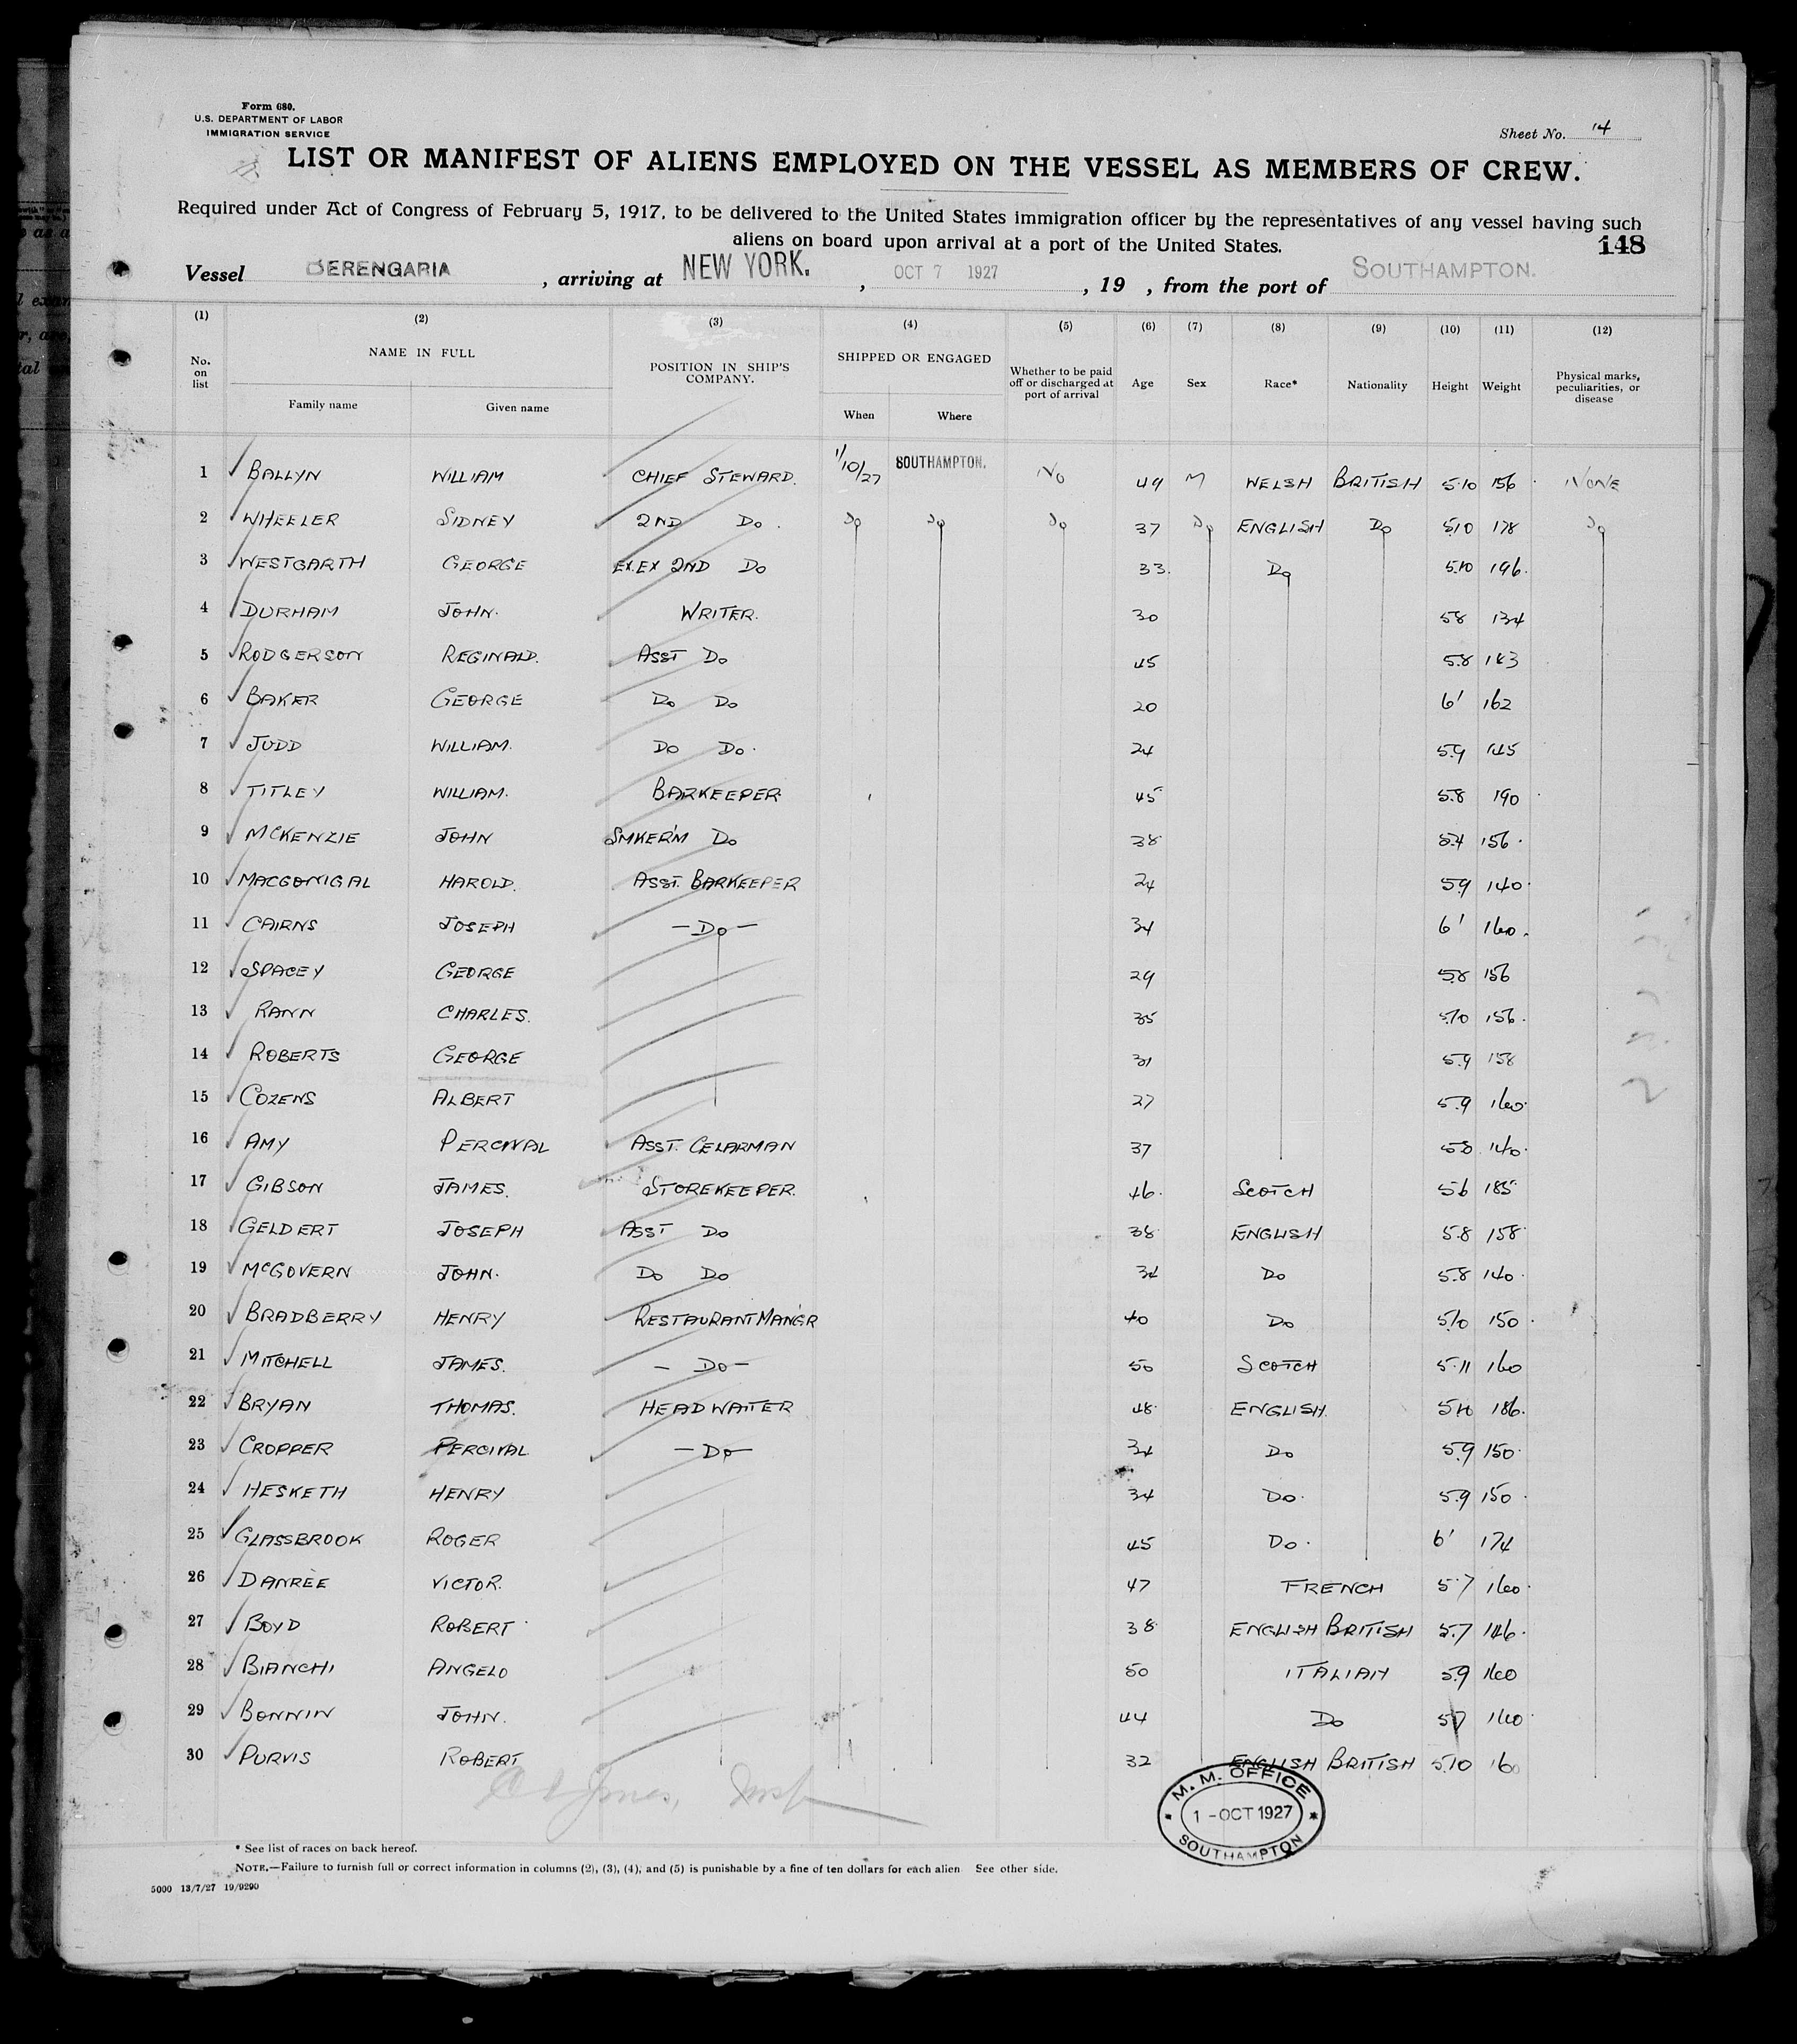 Form 680.
U.S. DEPARTMENT OF LABOR
IMMIGRATION SERVICE
Sheet No. 14
LIST OR MANIFEST OF ALIENS EMPLOYED ON THE VESSEL AS MEMBERS OF CREW.
Required under Act of Congress of February 5, 1917, to be delivered to the United States immigration officer by the representatives of any vessel having such
aliens on board upon arrival at a port of the United States.
148
Vessel BERENGARIA, arriving at NEW YORK., OCT 7 1927, 19 , from the port of SOUTHAMPTON.
(1) (2) (3) (4) (5) (6) (7) (8) (9) (10) (11) (12)
No. on list NAME IN FULL POSITION IN SHIP'S COMPANY. SHIPPED OR ENGAGED Whether to be paid off or discharged at port of arrival Age Sex Race* Nationality Height Weight Physical marks, peculiarities, or disease
Family name Given name When Where
1 BALLYN WILLIAM CHIEF STEWARD. 1/10/27 SOUTHAMPTON. No 49 M WELSH BRITISH 5.10 156 NONE
2 WHEELER SIDNEY 2ND Do. Do Do Do 37 Do ENGLISH Do 5.10 178 Do
3 WESTGARTH GEORGE EX.EX 2ND Do 33. Do 5.10 196.
4 DURHAM JOHN. WRITER. 30 5.8 134
5 RODGERSON REGINALD. ASST Do 45 5.8 183
6 BAKER GEORGE Do Do 20 6' 162
7 JUDD WILLIAM. Do Do. 24 5.9 145
8 TITLEY WILLIAM. BARKEEPER 45 5.8 190
9 McKENZIE JOHN SMKER'M Do 38 5.4 156.
10 MACGONIGAL HAROLD. ASST. BARKEEPER 24 5.9 140.
11 CAIRNS JOSEPH — Do — 34 6' 160.
12 SPACEY GEORGE 29 5.8 156
13 RANN CHARLES. 35 5.10 156.
14 ROBERTS GEORGE 31 5.9 158
15 COZENS ALBERT 27 5.9 160.
16 AMY PERCIVAL ASST. CELARMAN 37 5.8 140.
17 GIBSON JAMES. STOREKEEPER. 46. SCOTCH 5.6 185
18 GELDERT JOSEPH ASST Do 38 ENGLISH 5.8 158
19 McGOVERN JOHN. Do Do 34 Do 5.8 140.
20 BRADBERRY HENRY RESTAURANT MAN'GR 40 Do 5.10 150.
21 MITCHELL JAMES. — Do — 50 SCOTCH 5.11 160
22 BRYAN THOMAS. HEAD WAITER 48. ENGLISH. 5.10 186.
23 CROPPER PERCIVAL — Do — 34 Do 5.9 150.
24 HESKETH HENRY 34 Do. 5.9 150.
25 GLASSBROOK ROGER 45 Do. 6' 174
26 DANRÈE VICTOR. 47 FRENCH 5.7 160.
27 BOYD ROBERT 38 ENGLISH BRITISH 5.7 146.
28 BIANCHI ANGELO 50 ITALIAN 5.9 160
29 BONNIN JOHN. 44 Do 5.7 160.
30 PURVIS ROBERT 32 ENGLISH BRITISH 5.10 160
Jones, Insp
M. M. OFFICE
1 - OCT 1927
SOUTHAMPTON
* See list of races on back hereof.
NOTE.—Failure to furnish full or correct information in columns (2), (3), (4), and (5) is punishable by a fine of ten dollars for each alien. See other side.
5000 13/7/27 19/9290